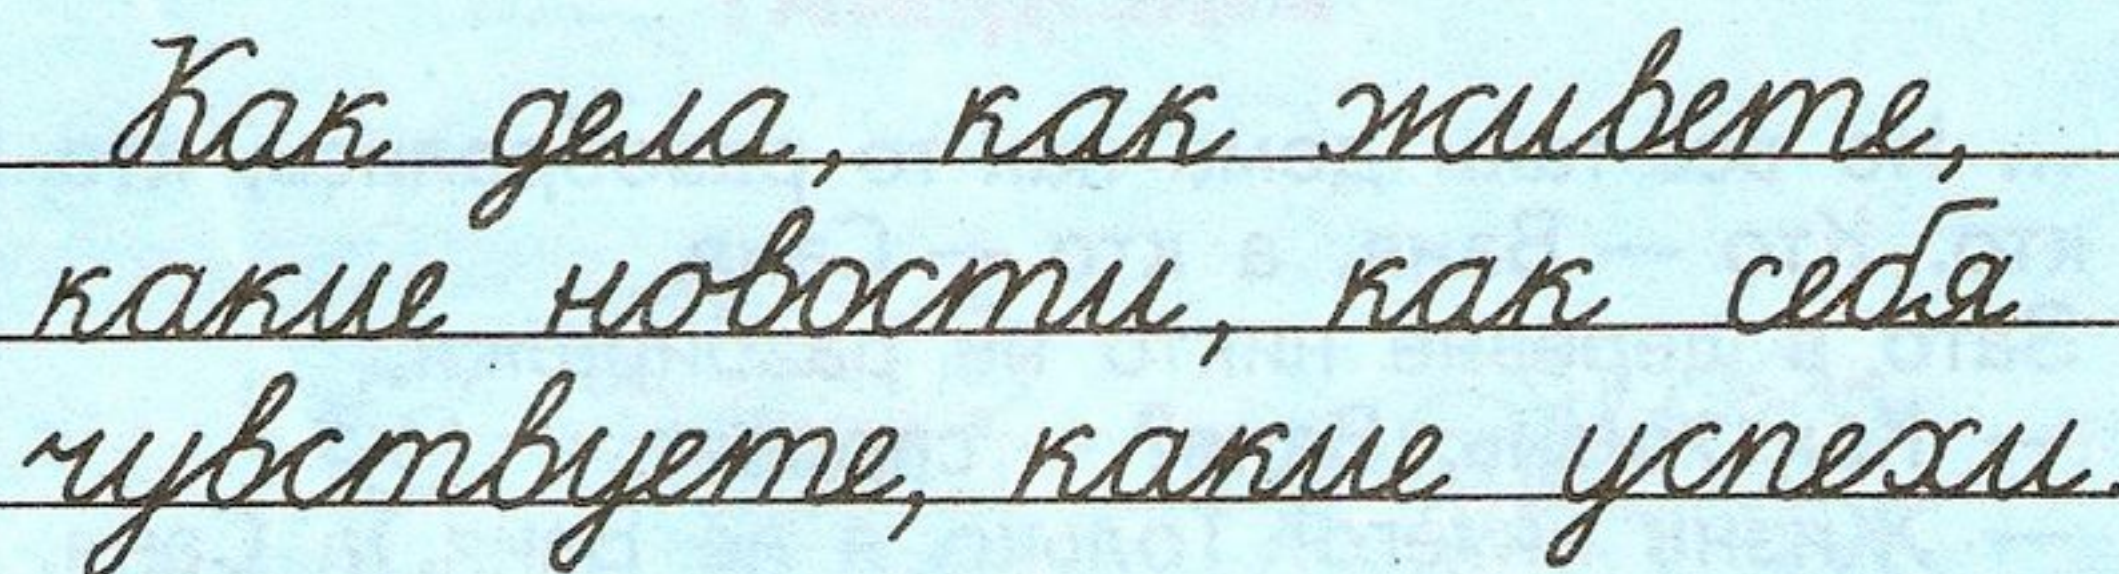 Как дела, как живете,
какие новости, как себя
чувствуете, какие успехи.